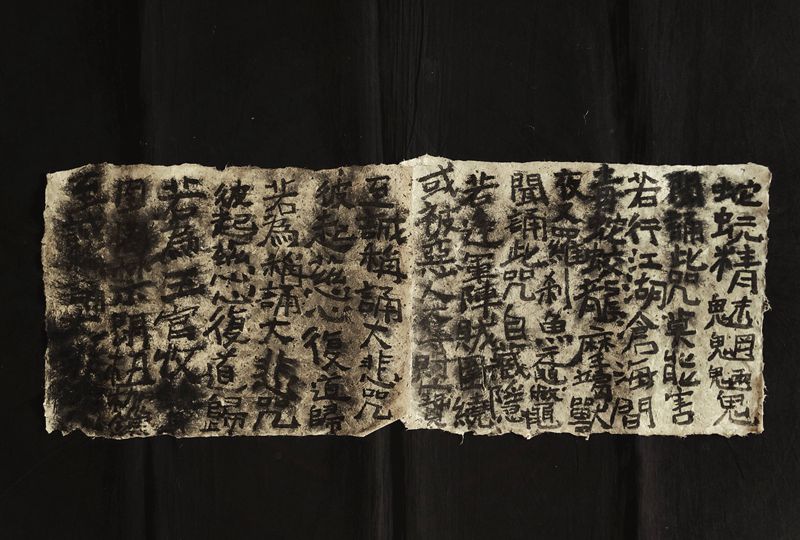 蛇蚖精魅魍魎鬼
聞誦此咒莫能害
若行江湖倉海間
毒蛇蛟龍摩竭獸
夜叉羅刹魚黿鼈
聞誦此咒自藏隱
若逢軍陣賊圍繞
或被惡人奪財寶
至誠稱誦大悲咒
彼起慈心復道歸
若為稱誦大悲咒
彼起慈心復道歸
若為王官收
閉杻